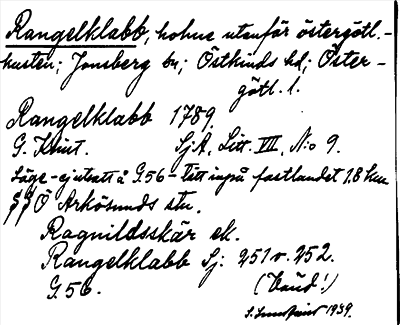 Rangelklabb, holme utanför östergötl.-
kusten; Jonsberg sn; Östkinds hd; Öster-
götl. l.
Rangelklabb 1789.
G. Klint. SjA, Litt. VII, N:o 9.
Läge - ej utsatt å G.56 - lätt inpå fastlandet 1,8 km
Ö Arkösunds stn.
Ragnildsskär ek.
Rangelklabb Sj: 251 v. 252.
G.56. (baud!)
1939.